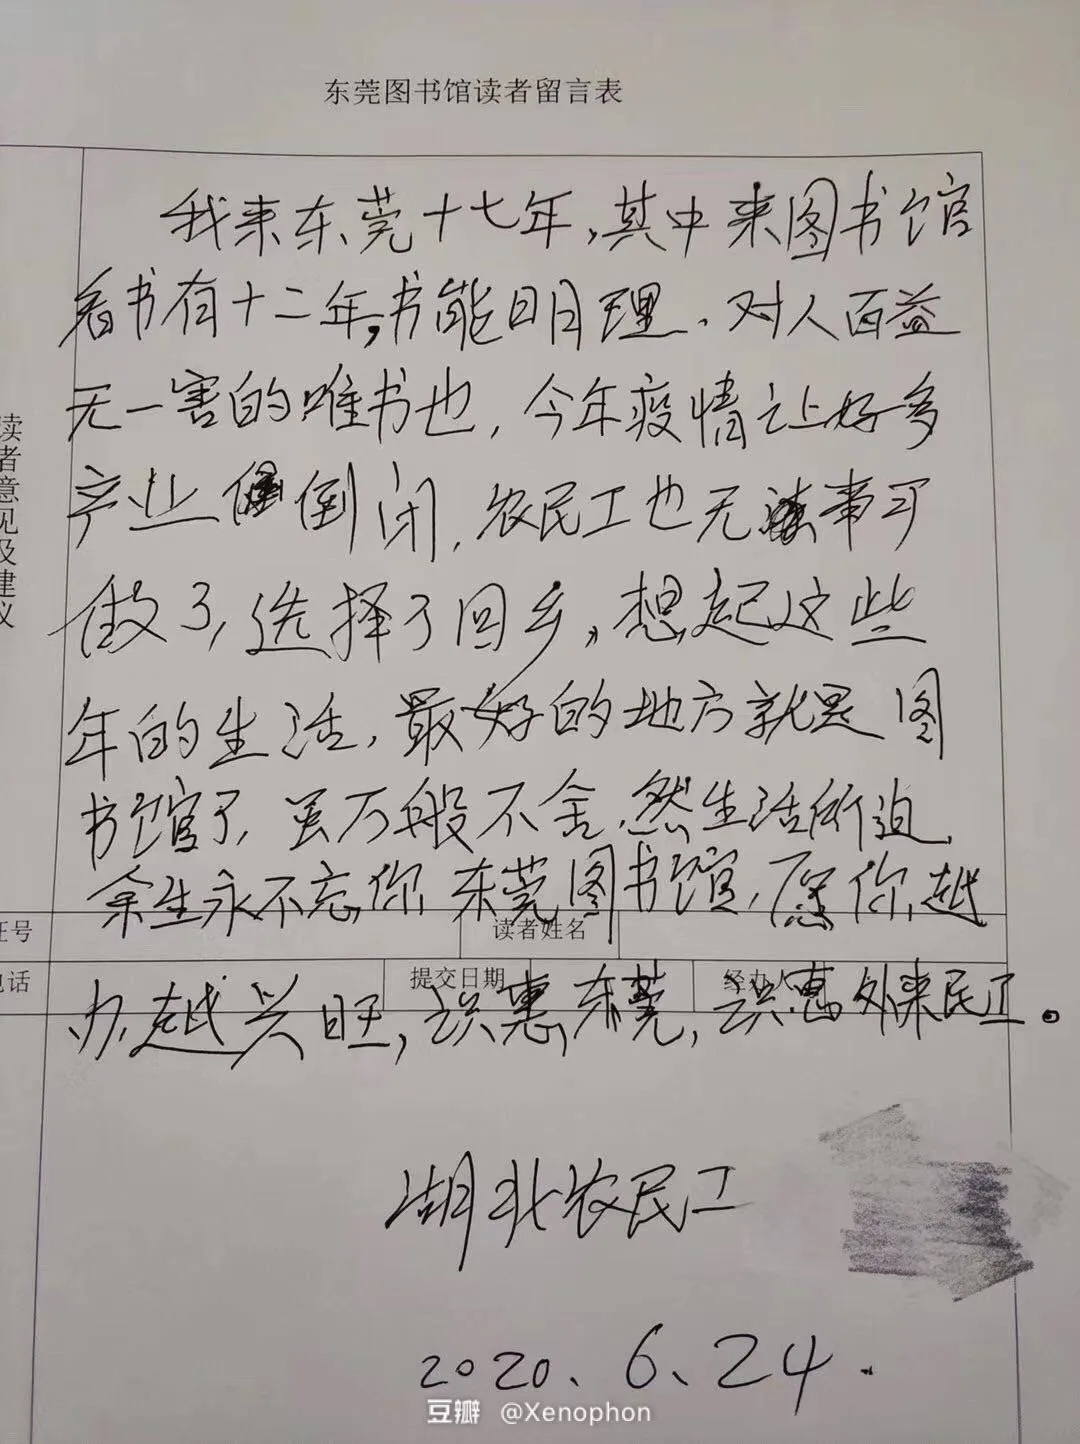 东莞图书馆读者留言表
我来东莞十七年，其中来图书馆
看书有十二年，书能明理、对人百益
无一害的唯书也，今年疫情让好多
产业倒闭，农民工也无事可
做了，选择了回乡。想起这些
年的生活，最好的地方就是图
书馆了，虽万般不舍，然生活所迫，
余生永不忘你，东莞图书馆，愿你越
办越兴旺，识惠东莞，识惠外来民工。
读者意见及建议
证号
读者姓名
电话
提交日期
经办人
湖北农民工
2020、6、24.
豆瓣 @Xenophon